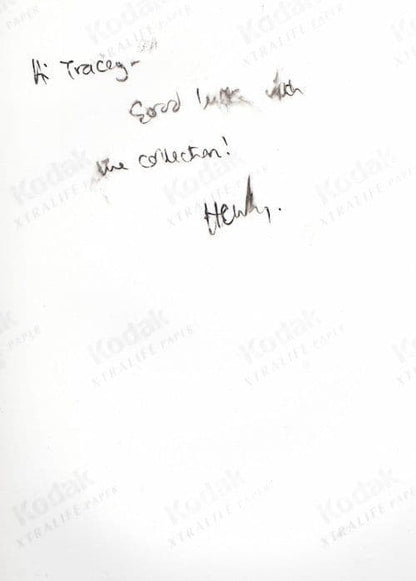 Hi Tracey-
Good luck with
the collection!
Henry.
Kodak
XTRALIFE PAPER
Kodak
XTRALIFE PAPER
Kodak
XTRALIFE PAPER
Kodak
XTRALIFE PAPER
Kodak
XTRALIFE PAPER
Kodak
XTRALIFE PAPER
Kodak
XTRALIFE PAPER
Kodak
XTRALIFE PAPER
Kodak
XTRALIFE PAPER